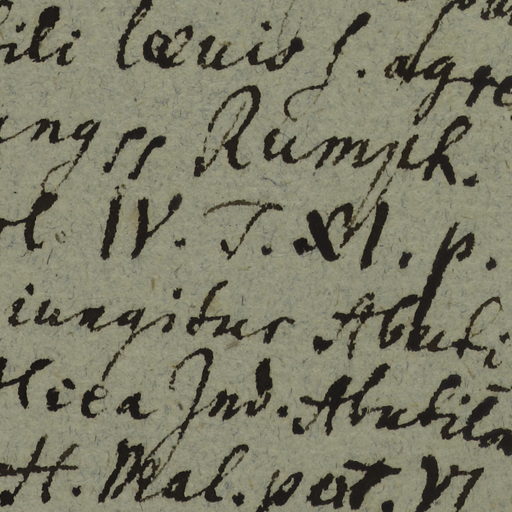 ili laevis s. agre
angss Rumph.
ol. IV. T. XI. p.
iungitur Abuti
thea Ind. Abutilon
H. Mal. part. VI